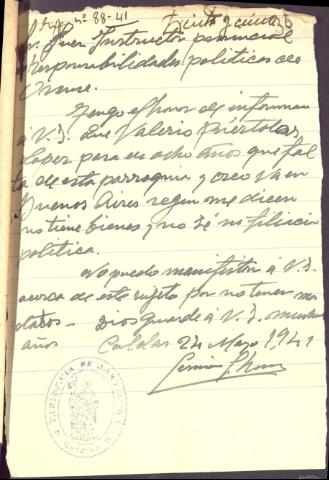 Exp. nº 88-41
Sr. Juez Instructor provincial
Responsabilidades políticas de
Orense.
Tengo el honor de informar
á V.S. que Valerio
para ocho años que fal-
ta de esta parroquia y creo va en
Buenos Aires segun me dicen
no tiene bienes y no sé na filiacion
política.
No puedo manifestar á V.S.
acerca de este sujeto por no tener mas
datos - Dios guarde á V.S. muchos
años Caldas 24 Mayo 1941
PARROQUIA DE